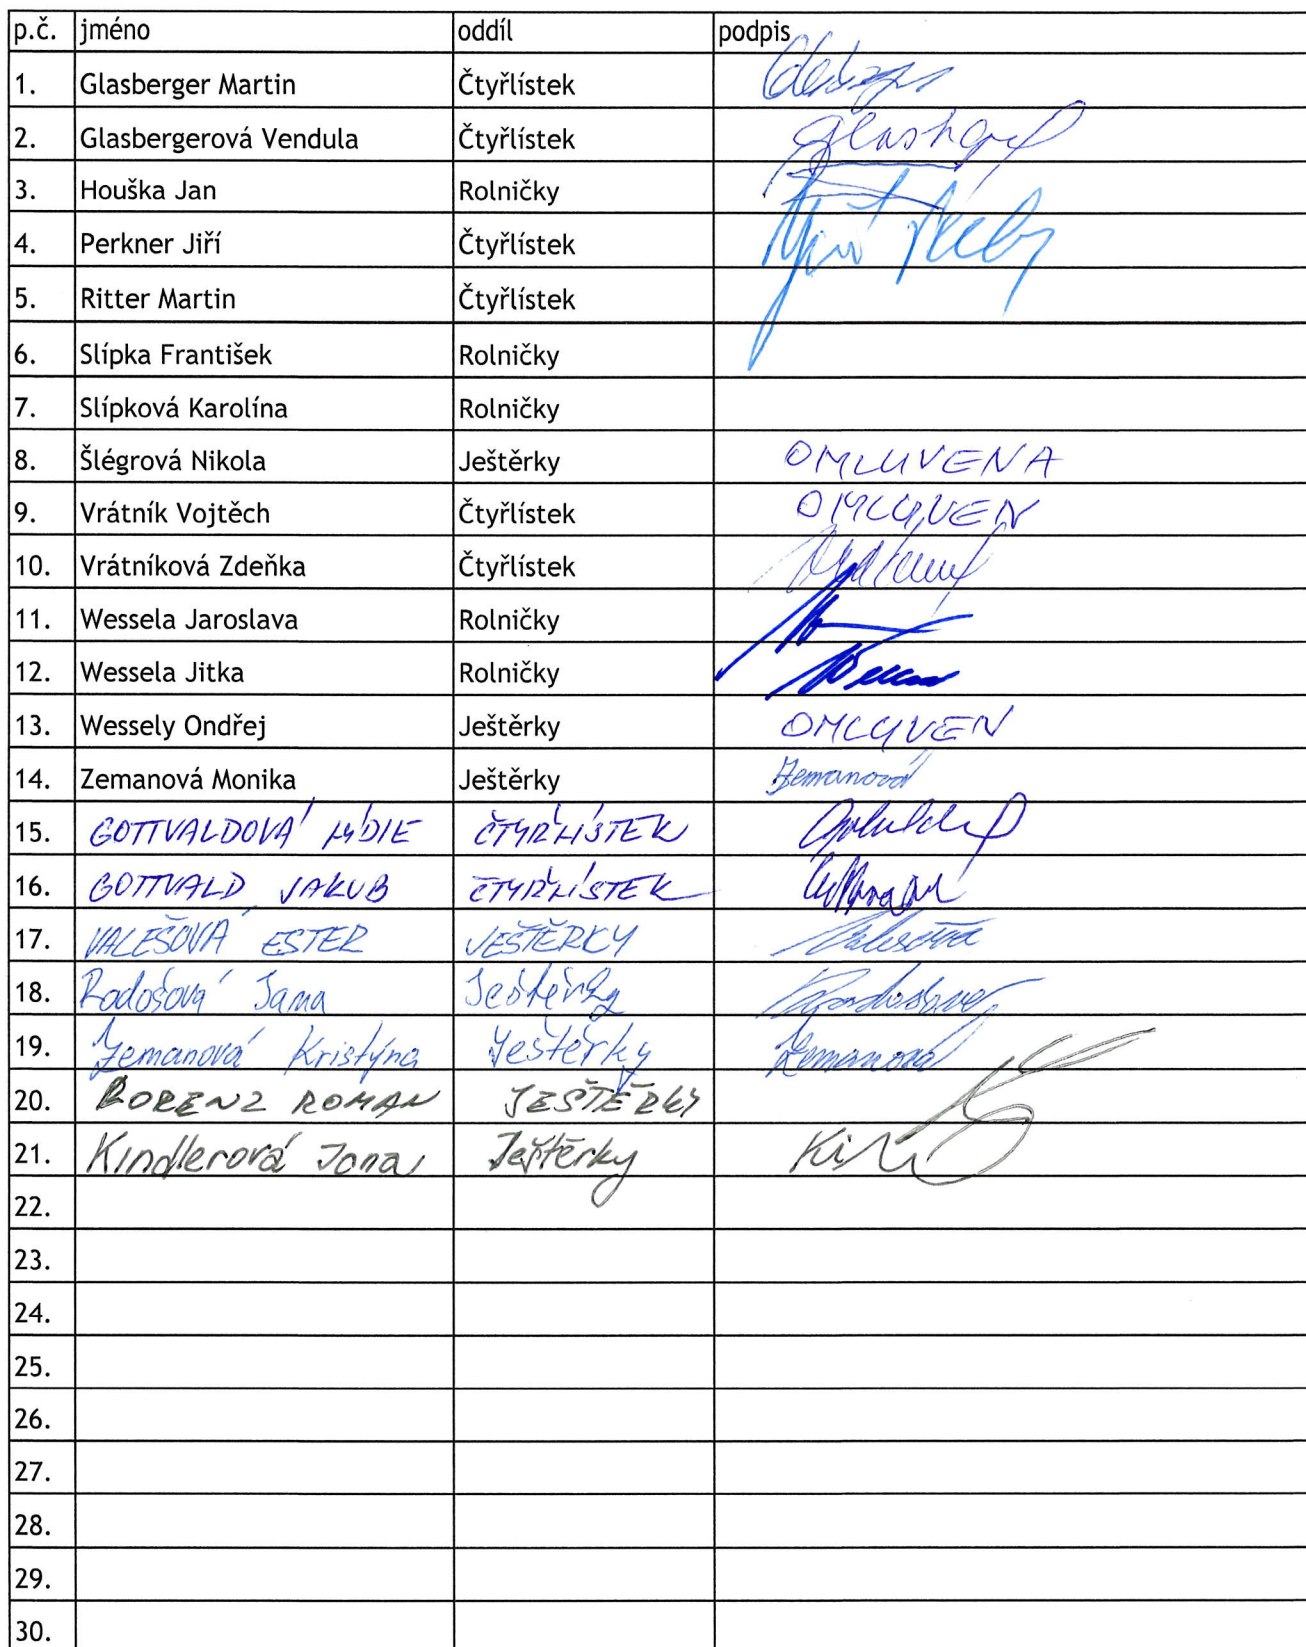 p.č. jméno oddíl podpis
1. Glasberger Martin Čtyřlístek
2. Glasbergerová Vendula Čtyřlístek
3. Houška Jan Rolničky
4. Perkner Jiří Čtyřlístek
5. Ritter Martin Čtyřlístek
6. Slípka František Rolničky
7. Slípková Karolína Rolničky
8. Šlégrová Nikola Ještěrky OMLUVENA
9. Vrátník Vojtěch Čtyřlístek OMLUVEN
10. Vrátníková Zdeňka Čtyřlístek
11. Wessela Jaroslava Rolničky
12. Wessela Jitka Rolničky
13. Wessely Ondřej Ještěrky OMLUVEN
14. Zemanová Monika Ještěrky Zemanová
15. GOTTVALDOVÁ LÝDIE ČTYŘLÍSTEK
16. GOTTVALD JAKUB ČTYŘLÍSTEK
17. VALEŠOVÁ ESTER JEŠTĚRKY Valešová
18. Radošová Jana Ještěrky
19. Zemanová Kristýna Ještěrky Zemanová
20. LORENZ ROMAN JEŠTĚRKY
21. Kindlerová Jona Ještěrky
22.
23.
24.
25.
26.
27.
28.
29.
30.